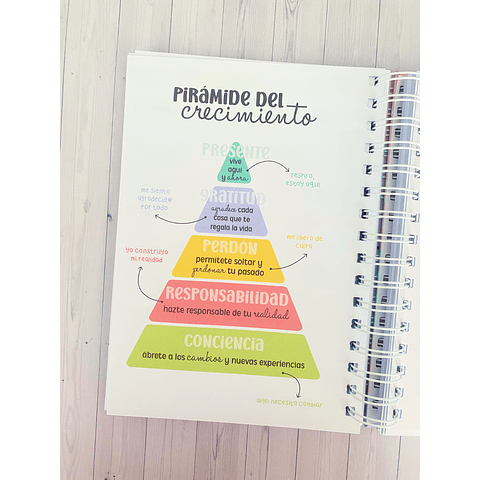 PIRÁMIDE DEL
crecimiento
PRESENTE
vive
aquí
y ahora
respiro,
estoy aquí
GRATITUD
agradece cada
cosa que te
regala la vida
me siento
agradecid@
por todo
PERDÓN
permítete soltar y
perdonar tu pasado
me libero de
culpa
yo construyo
mi realidad
RESPONSABILIDAD
hazte responsable de tu realidad
CONCIENCIA
ábrete a los cambios y nuevas experiencias
necesito cambiar